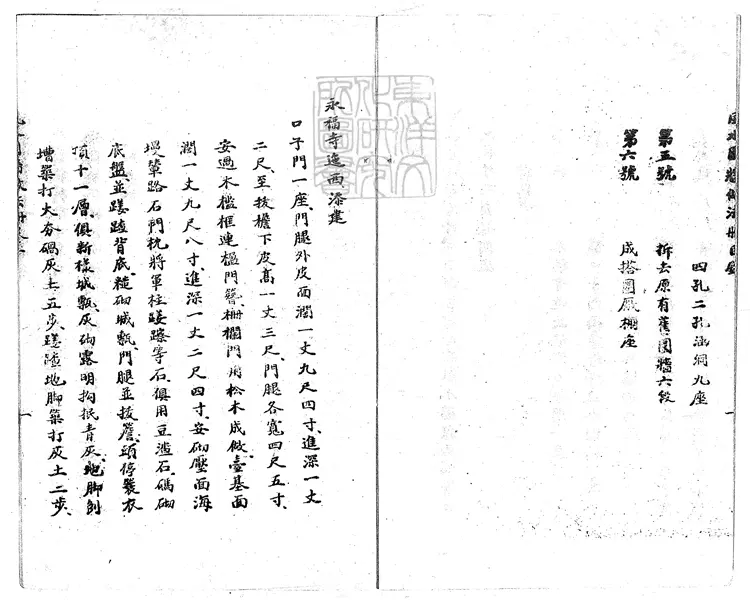 四孔二孔涵洞九座
第五號
拆去原有舊圍牆六段
第六號
成搭圓厰棚座
永福寺迤西添建
口子門一座、門腿外皮面濶一丈九尺四寸、進深一丈
二尺、至拔檐下皮高一丈三尺、門腿各寬四尺五寸、
安過木檻框連楹門簪、柵欄門、用松木成做、臺基面
濶一丈九尺八寸、進深一丈二尺四寸、安砌壓面海
墁輦路石門枕將軍柱䃰石等石、俱用豆渣石、碼砌
底盤並踺䃰背底、糙砌城甎、門腿並拔簷、頭停䙝衣
頂十一層、俱新樣城甎、灰砌露明拘抿青灰、地脚刨
槽築打大夯碢灰土五步、䃰地脚築打灰土二步、